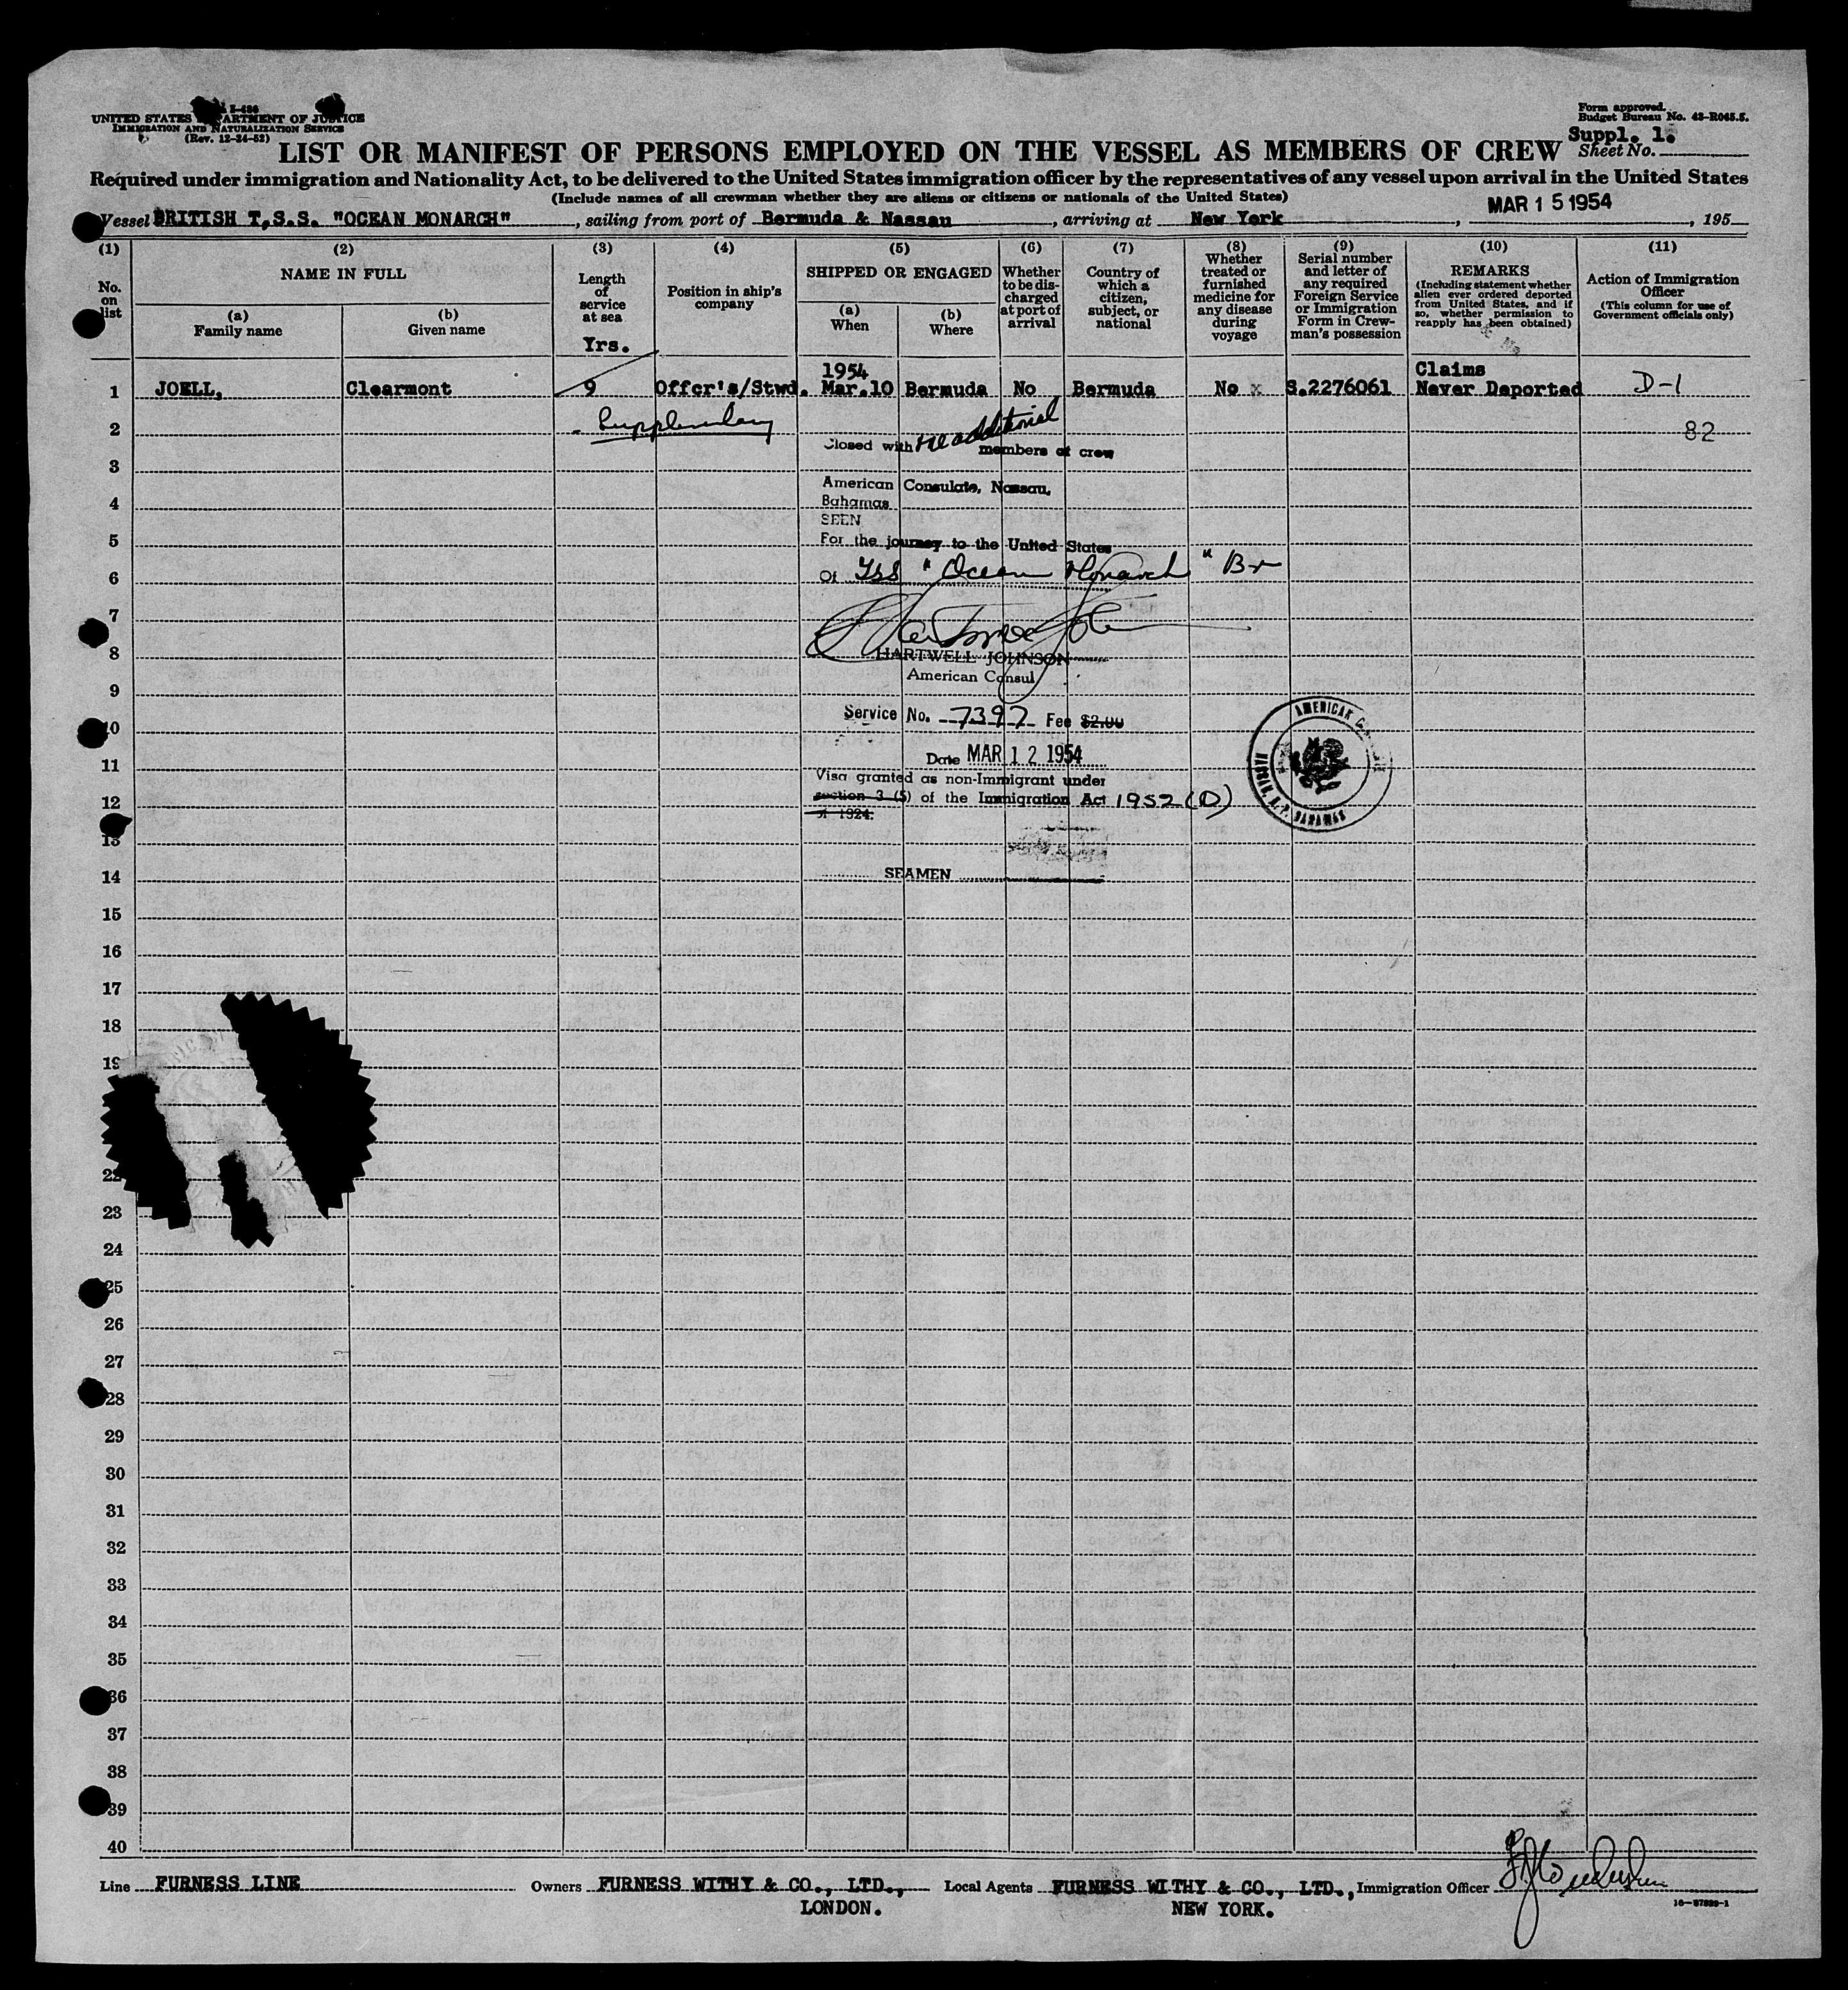 I-486
UNITED STATES DEPARTMENT OF JUSTICE
IMMIGRATION AND NATURALIZATION SERVICE
(Rev. 12-24-52)
Form approved.
Budget Bureau No. 43-R065.5.
Suppl. 1.
Sheet No.
LIST OR MANIFEST OF PERSONS EMPLOYED ON THE VESSEL AS MEMBERS OF CREW
Required under immigration and Nationality Act, to be delivered to the United States immigration officer by the representatives of any vessel upon arrival in the United States
(Include names of all crewman whether they are aliens or citizens or nationals of the United States)
Vessel BRITISH T.S.S. "OCEAN MONARCH", sailing from port of Bermuda & Nassau, arriving at New York, MAR 15 1954, 195
(1) (2) (3) (4) (5) (6) (7) (8) (9) (10) (11)
No. on list
NAME IN FULL
(a) Family name
(b) Given name
Length of service at sea
Yrs.
Position in ship's company
SHIPPED OR ENGAGED
(a) When
(b) Where
Whether to be discharged at port of arrival
Country of which a citizen, subject, or national
Whether treated or furnished medicine for any disease during voyage
Serial number and letter of any required Foreign Service or Immigration Form in Crewman's possession
REMARKS
(Including statement whether alien ever ordered deported from United States, and if so, whether permission to reapply has been obtained)
No
Action of Immigration Officer
(This column for use of Government officials only)
1954 Claims
1 JOELL, Clearmont 9 Offcr's/Stwd. Mar.10 Bermuda No Bermuda No x S.2276061 Never Deported D-1
2 Supplementary 82
Closed with no additional members of crew
3
American Consulate, Nassau,
4 Bahamas
SEEN
5 For the journey to the United States
6 Of Tss "Ocean Monarch" Br
7
8 HARTWELL JOHNSON
American Consul
9
Service No. 7397 Fee $2.00
10
AMERICAN CONSULATE
NASSAU, N.P. BAHAMAS
Date MAR 12 1954
11
Visa granted as non-Immigrant under
12 section 3 (5) of the Immigration Act 1952 (D)
of 1924.
13
14 SEAMEN
15
16
17
18
19
22
23
24
25
26
27
28
29
30
31
32
33
34
35
36
37
38
39
40
Line FURNESS LINE Owners FURNESS WITHY & CO., LTD., Local Agents FURNESS WITHY & CO., LTD., Immigration Officer
LONDON. NEW YORK.
16-67829-1